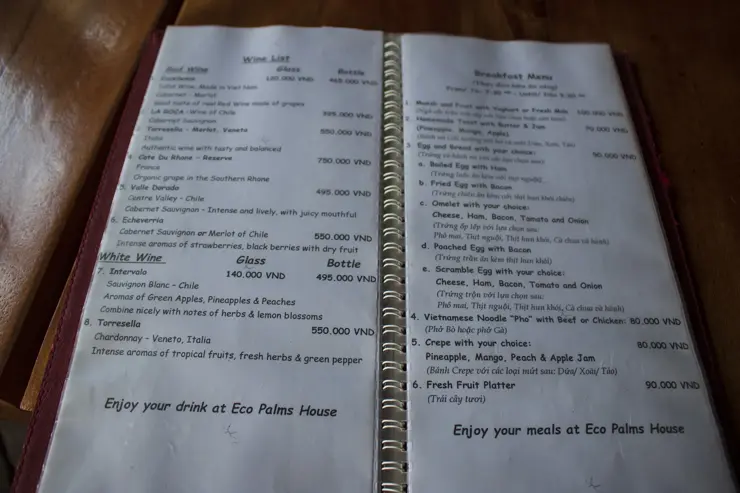 Wine List
Red Wine Glass Bottle
1. Excellence 120.000 VND 465.000 VND
Solid Wine, Made in Viet Nam
Cabernet - Merlot
Good taste of real Red Wine made of grapes
LA ROSCA - Wine of Chile 525.000 VND
Cabernet Sauvignon
3. Torresella - Merlot, Veneto 550.000 VND
Italia
Authentic wine with tasty and balanced
4. Cote Du Rhone - Reserve 750.000 VND
France
Organic grape in the Southern Rhone
5. Valle Dorado 495.000 VND
Centre Valley - Chile
Cabernet Sauvignon - Intense and lively, with juicy mouthful
6. Echeverria
Cabernet Sauvignon or Merlot of Chile 550.000 VND
Intense aromas of strawberries, black berries with dry fruit
White Wine Glass Bottle
7. Intervalo 140.000 VND 495.000 VND
Sauvignon Blanc - Chile
Aromas of Green Apples, Pineapples & Peaches
Combine nicely with notes of herbs & lemon blossoms
8. Torresella 550.000 VND
Chardonnay - Veneto, Italia
Intense aromas of tropical fruits, fresh herbs & green pepper
Enjoy your drink at Eco Palms House
Breakfast Menu
(Thực đơn bữa ăn sáng)
1. Muesli and Fruit with Yoghurt or Fresh Milk 100,000 VND
2. Homemade Toast with Butter & Jam 70,000 VND
(Pineapple, Mango, Apple)
3. Egg and Bread with your choice: 90,000 VND
a. Boiled Egg with Ham
b. Fried Egg with Bacon
(Trứng chiên ăn kèm với thịt hun khói)
c. Omelet with your choice:
Cheese, Ham, Bacon, Tomato and Onion
(Trứng ốp lếp với lựa chọn sau:
Phô mai, Thịt nguội, Thịt hun khói, Cà chua và hành)
d. Poached Egg with Bacon
(Trứng trần ăn kèm thịt hun khói)
e. Scramble Egg with your choice:
Cheese, Ham, Bacon, Tomato and Onion
(Trứng trộn với lựa chọn sau:
Phô mai, Thịt nguội, Thịt hun khói, Cà chua và hành)
4. Vietnamese Noodle "Pho" with Beef or Chicken: 80,000 VND
(Phở Bò hoặc phở Gà)
5. Crepe with your choice: 80,000 VND
Pineapple, Mango, Peach & Apple Jam
(Bánh Crepe với các loại mứt sau: Dứa/ Xoài/ Táo)
6. Fresh Fruit Platter 90,000 VND
(Trái cây tươi)
Enjoy your meals at Eco Palms House